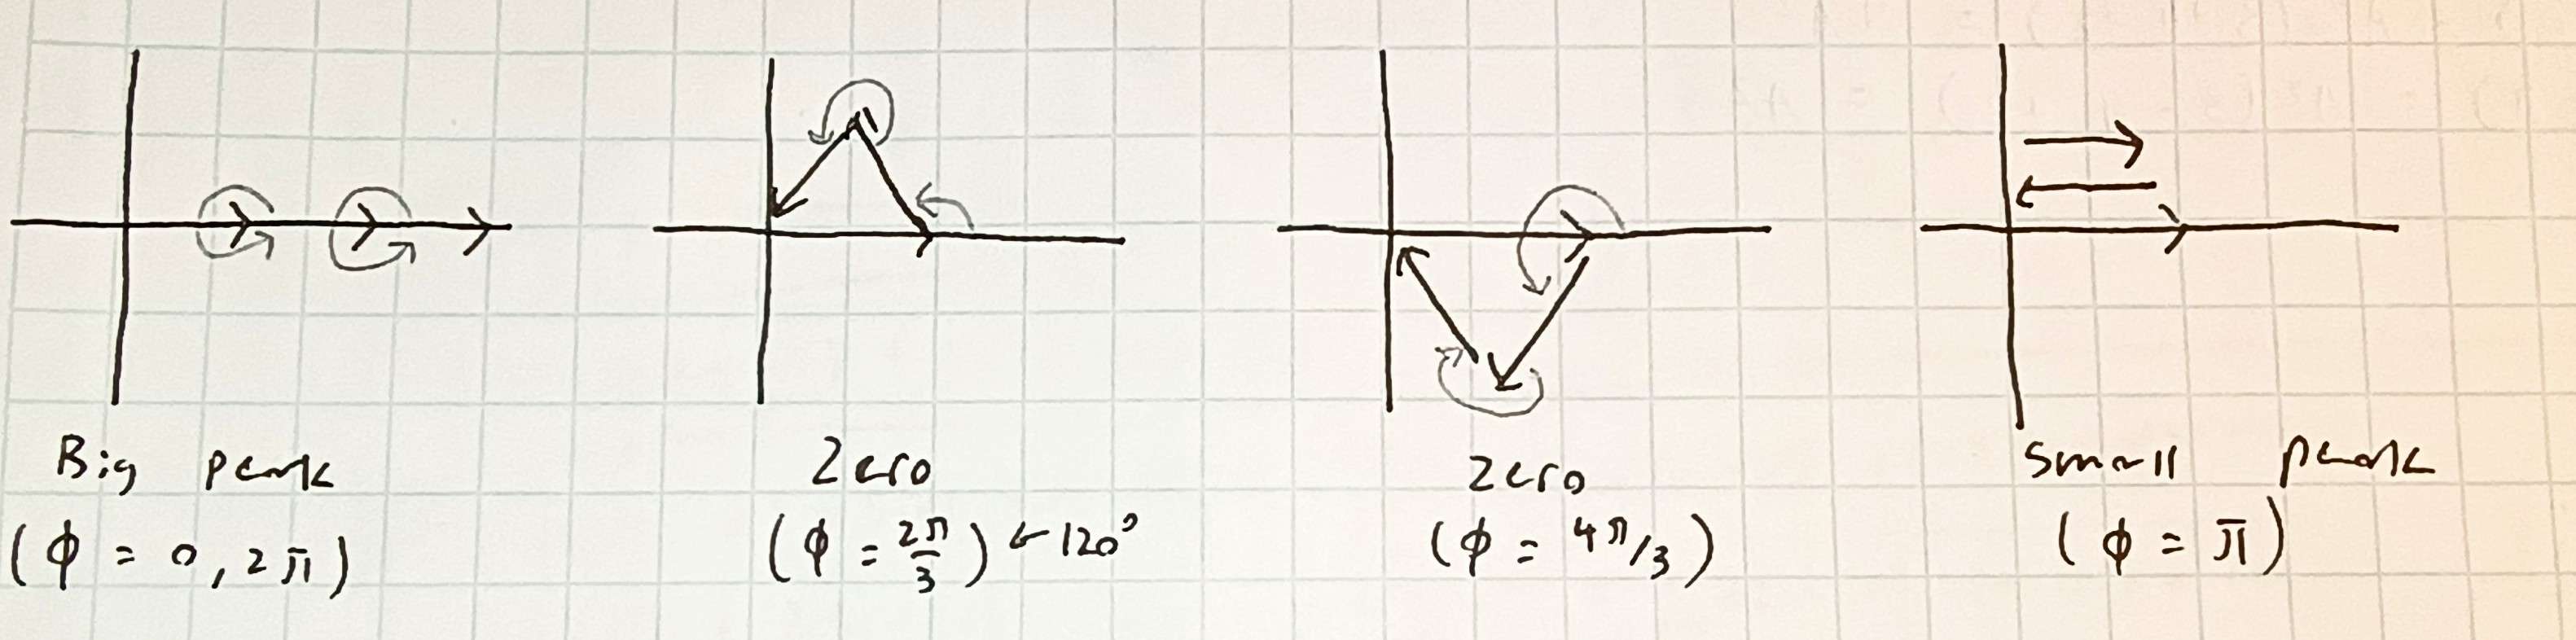 Big peak
(ϕ = 0, 2π)
Zero
(ϕ = 2π/3) ← 120°
Zero
(ϕ = 4π/3)
Small peak
(ϕ = π)